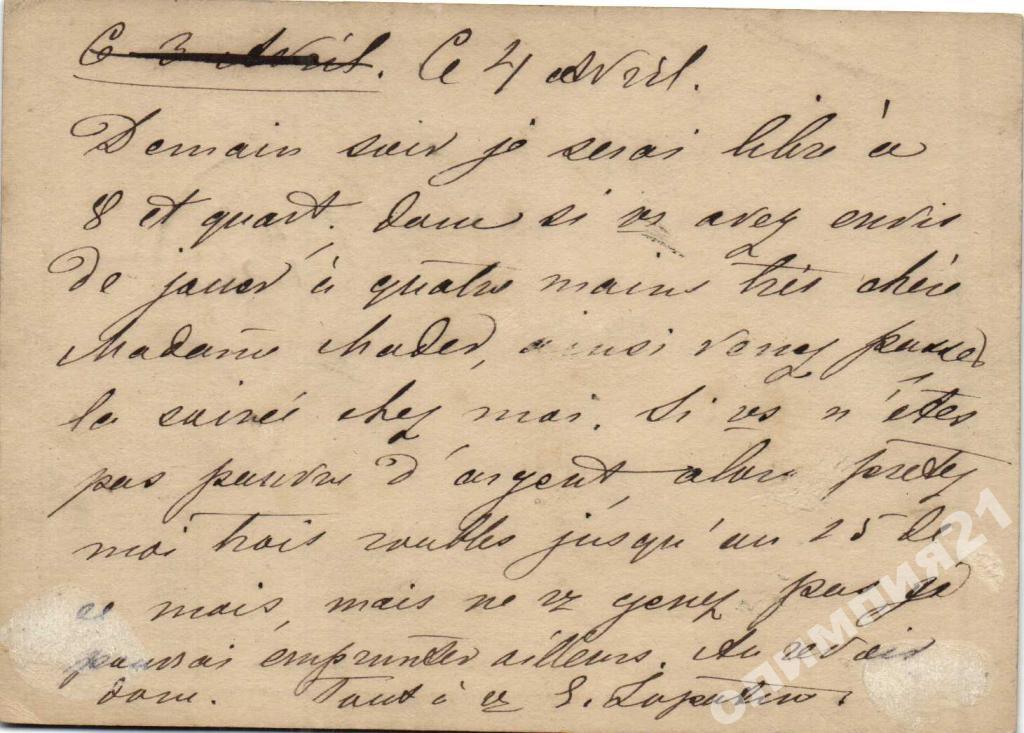 C 3 Avril. Ce 4 Avril.
Demain soir je serai libre à
8 et quart. donc si vs avez envie
de jouer à quatre mains très chère
Madame Mader, ainsi venez passer
la soirée chez moi. Si vs n'êtes
pas pauvre d'argent, alors prêtez
moi trois roubles jusqu'au 25 de
ce mois, mais ne vs genez pas je
pourrai emprunter ailleurs. Au revoir
donc. Tout à vs E. Lopatin.
олимпия21